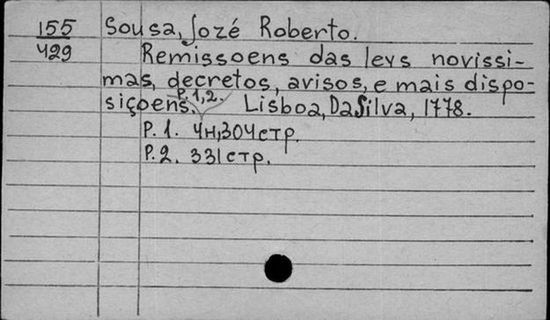 155 Sousa, Jozé Roberto.
429 Remissoens das leys novissi-
mas, decretos, avisos, e mais dispo-
siçoens. P. 1,2. Lisboa, DaSilva, 1778.
P. 1. 4н,304стр.
P. 2. 331стр.